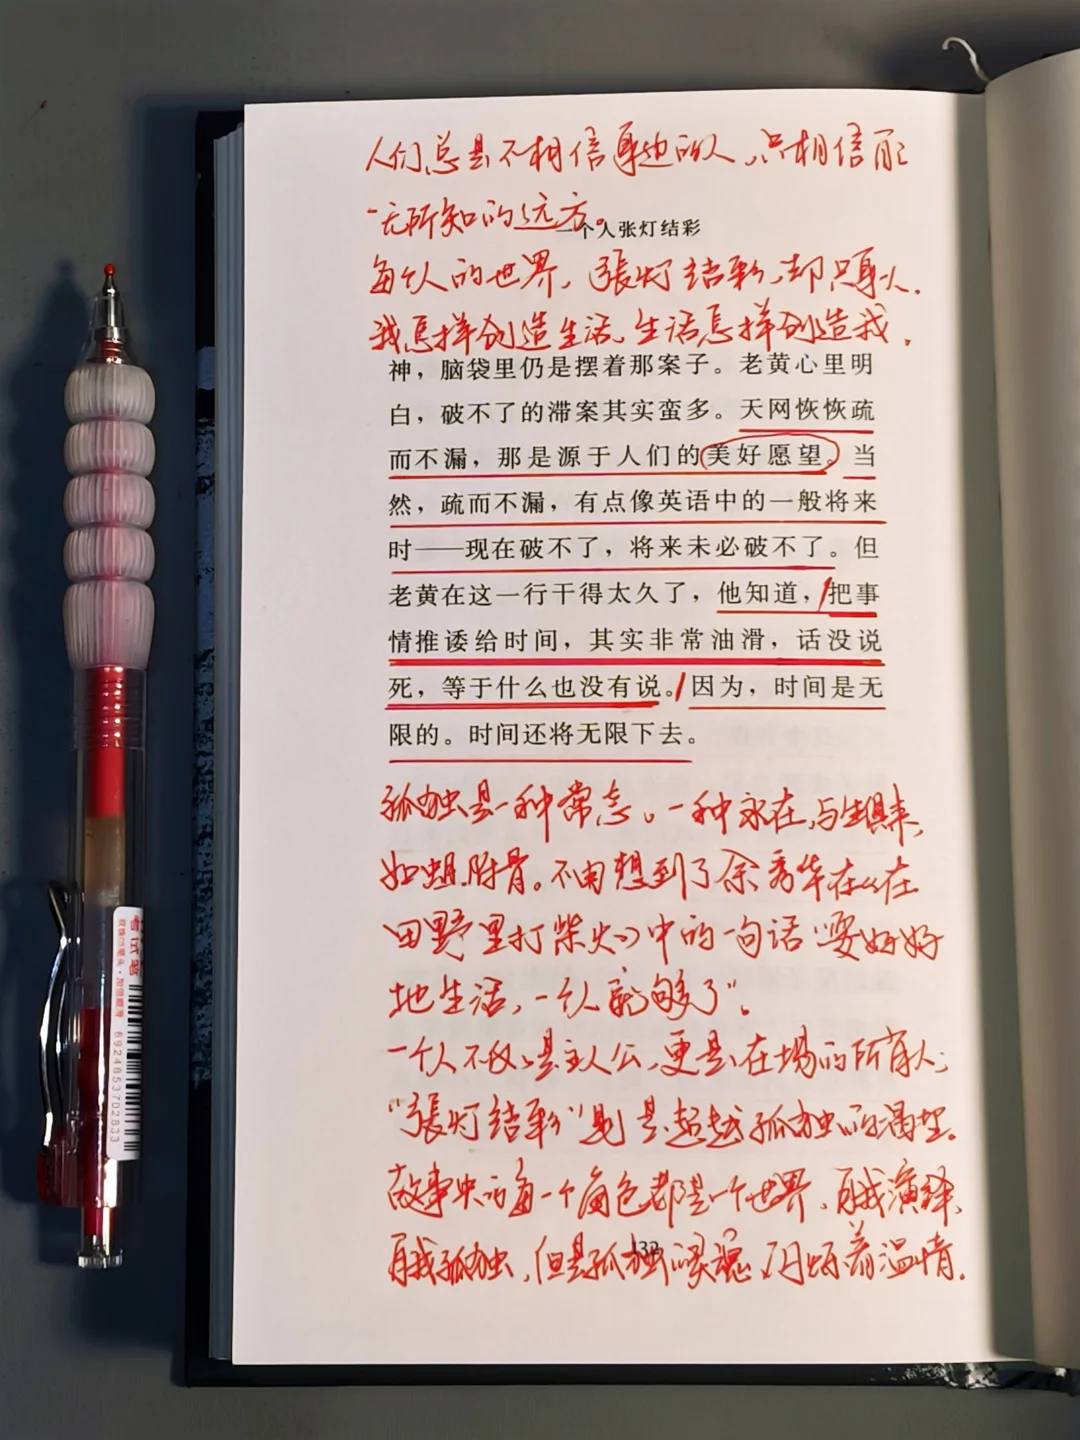 人们总是不相信身边的人，只相信自己
一无所知的远方。
一个人张灯结彩
每个人的世界，張灯结彩，却只身一人．
我怎样创造生活，生活怎样创造我．
神，脑袋里仍是摆着那案子。老黄心里明
白，破不了的滞案其实蛮多。天网恢恢疏
而不漏，那是源于人们的美好愿望。当
然，疏而不漏，有点像英语中的一般将来
时——现在破不了，将来未必破不了。但
老黄在这一行干得太久了，他知道，把事
情推诿给时间，其实非常油滑，话没说
死，等于什么也没有说。因为，时间是无
限的。时间还将无限下去。
孤独是一种常态。一种永在，与生俱来，
如蛆附骨。不由想到了余秀华在《在
田野里打柴火》中的一句话“要好好
地生活，一个人就够了”。
一个人不仅是主人公，更是在場的所有人；
“張灯结彩”则是超越孤独的渴望．
故事中的每一个角色都是一个世界，自我演绎，
自我孤独，但是孤独的灵魂，闪烁着温情．
132
考试笔
6924853702833